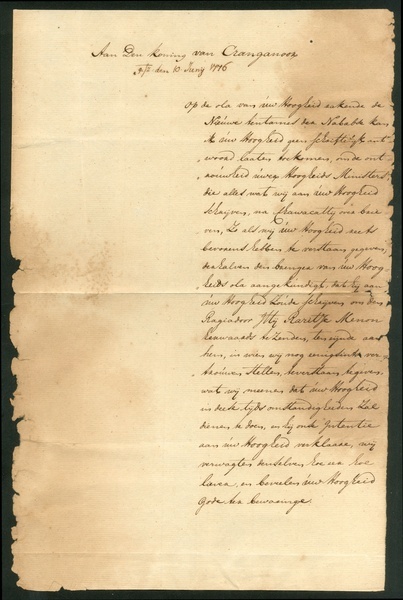 Aan Den koning van Cranganoor
den 10 Junij 1776
Op de ola van uw Hoogheid rakende de
Nieuwe tentames den Nabab kan
ik uw Hoogheid geen schriftelijk ant
woord laaten toekomen, om de ont
Hoogheids Ministers
die alles wat wij aan uw Hoogheid
schrijven, na brie
ven, zo als wij uw Hoogheid reets
bevorens hebben te verstaan gegeven,
derhalven den brenger van uw Hoog
heids ola aangekundigt, dat hij aan
uw Hoogheid zoude schrijven om den
Ragiadoor Itty Raritje Menon
herwaards te zenden, ten eynde aan
hem, in wien wij nog eenigsints ver
trouwen stellen, te verstaan te geven
wat wij meenen dat uw Hoogheid
in deese tyds omstandigheeden zal
dienen te doen, en hij ook potentie
aan uw Hoogheid verklaare, wij
verwagten denselven hoe eer hoe
liever, en beveelen uw Hoogheid
Gode ter bewaaringe.